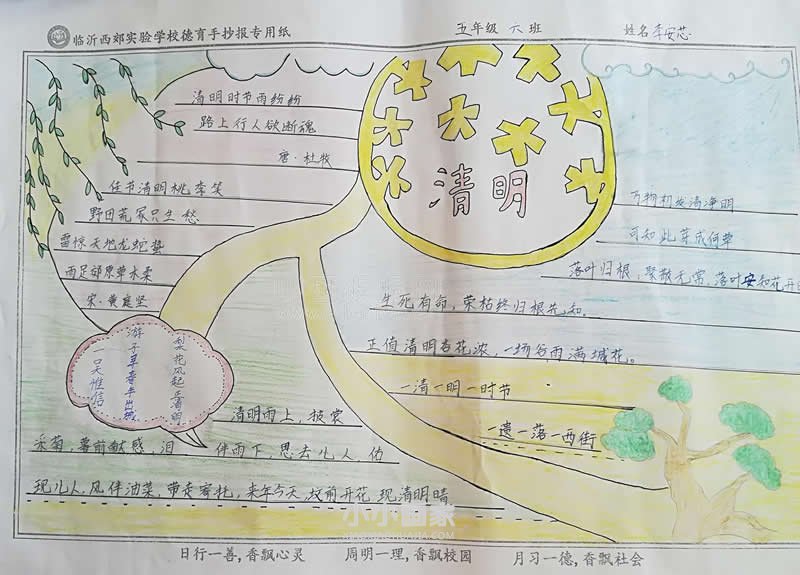 临沂西郊实验学校德育手抄报专用纸
五年级 六 班
姓名 李安芯
清明时节雨纷纷
路上行人欲断魂
唐·杜牧
佳节清明桃李笑
野田荒冢只生愁
雷惊天地龙蛇蛰
雨足郊原草木柔
宋·黄庭坚
清明
万物初发清净明
可知此芽成何草
落叶归根，聚散无常，落叶安知花开日
生死有命，荣枯终归根先知。
正值清明杏花浓，一场谷雨满城花。
一清一明一时节
一遗一落一西街
梨花风起正清明
游子寻春半出城
清明雨上，披裳
采菊，墓前献感，泪 伴雨下，思去儿人，伤
现儿人，风伴油菜，带走寄托，来年今天，坟前开花 现清明晴
小小画家
日行一善，香飘心灵 周明一理，香飘校园 月习一德，香飘社会